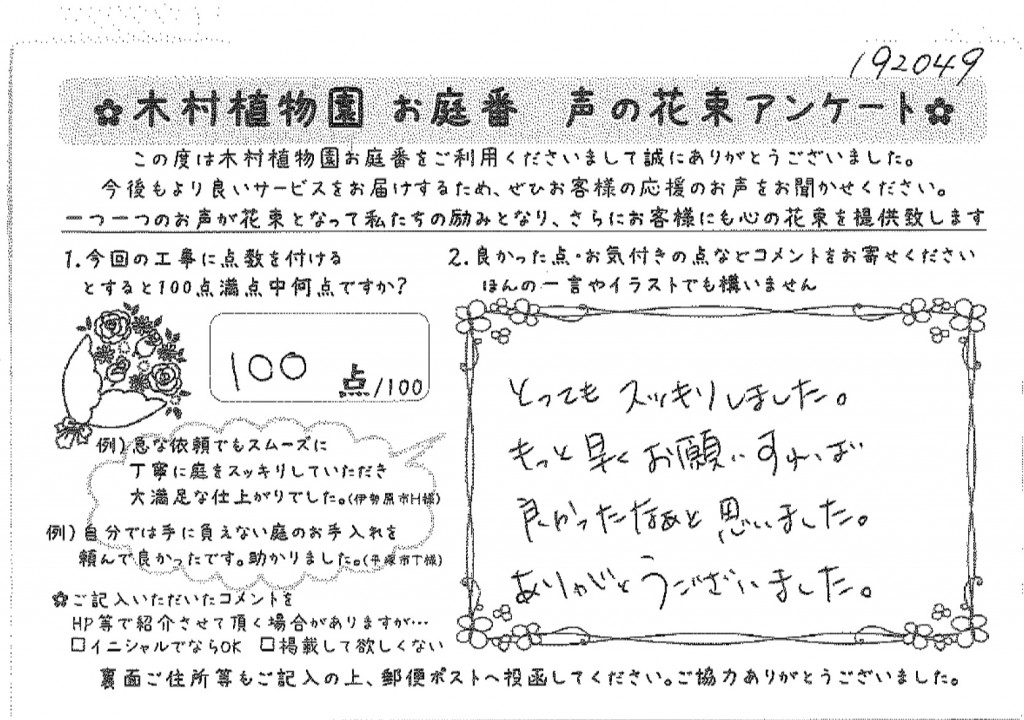 192049
✿木村植物園 お庭番 声の花束アンケート✿
この度は木村植物園お庭番をご利用くださいまして誠にありがとうございました。
今後もより良いサービスをお届けするため、ぜひお客様の応援のお声をお聞かせください。
一つ一つのお声が花束となって私たちの励みとなり、さらにお客様にも心の花束を提供致します
1.今回の工事に点数を付ける
とすると100点満点中何点ですか?
100 点/100
例)急な依頼でもスムーズに
丁寧に庭をスッキリしていただき
大満足な仕上がりでした。(伊勢原市H様)
例)自分では手に負えない庭のお手入れを
頼んで良かったです。助かりました。(平塚市T様)
✿ご記入いただいたコメントを
HP等で紹介させて頂く場合がありますが…
□イニシャルでならOK □掲載して欲しくない
2.良かった点・お気付きの点などコメントをお寄せください
ほんの一言やイラストでも構いません
とってもスッキリしました。
もっと早くお願いすれば
良かったなぁと思いました。
ありがとうございました。
裏面ご住所等もご記入の上、郵便ポストへ投函してください。ご協力ありがとうございました。